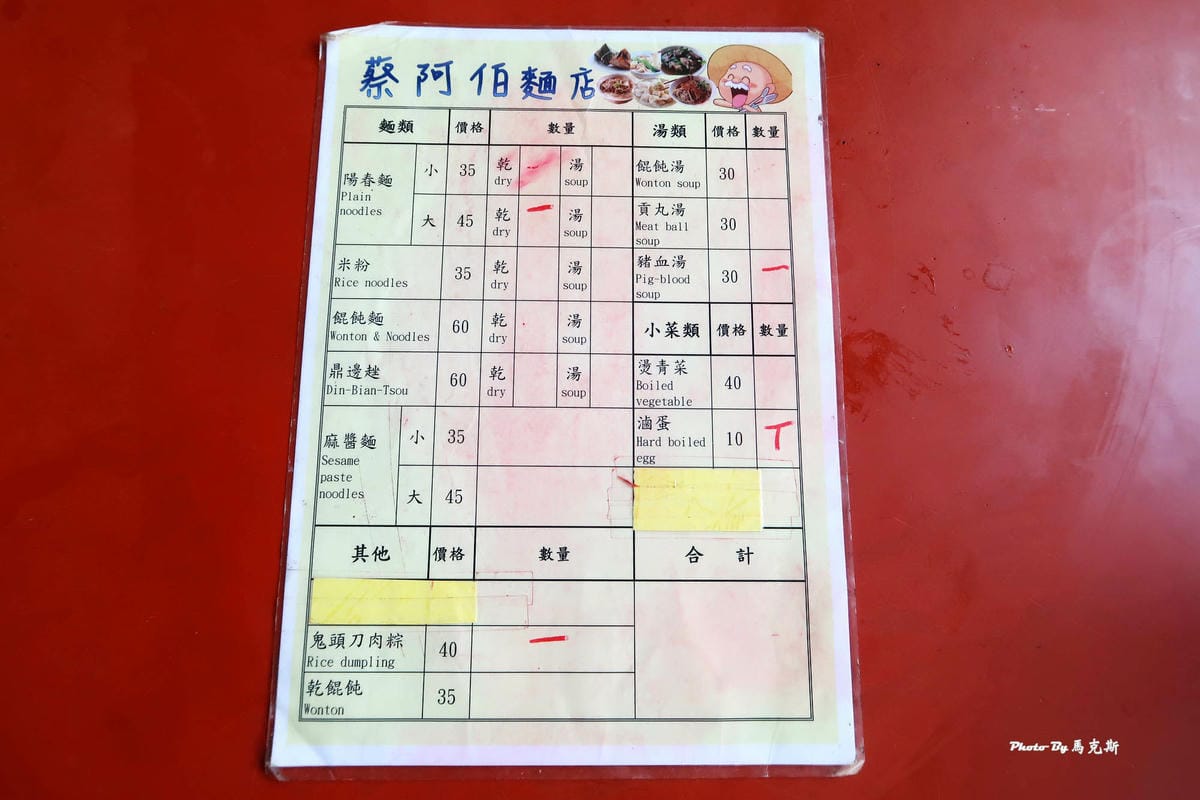 蔡阿伯麵店
麵類 價格 數量
陽春麵
Plain
noodles
小 35 乾 一 湯
dry soup
大 45 乾 一 湯
dry soup
米粉 35 乾 湯
Rice noodles dry soup
餛飩麵 60 乾 湯
Wonton & Noodles dry soup
鼎邊趖 60 乾 湯
Din-Bian-Tsou dry soup
麻醬麵
Sesame
paste
noodles
小 35
大 45
其他 價格 數量
鬼頭刀肉粽 40 一
Rice dumpling
乾餛飩 35
Wonton
湯類 價格 數量
餛飩湯 30
Wonton soup
貢丸湯 30
Meat ball
soup
豬血湯 30 一
Pig-blood
soup
小菜類 價格 數量
燙青菜 40
Boiled
vegetable
滷蛋 10 T
Hard boiled
egg
合計
Photo By 馬克斯